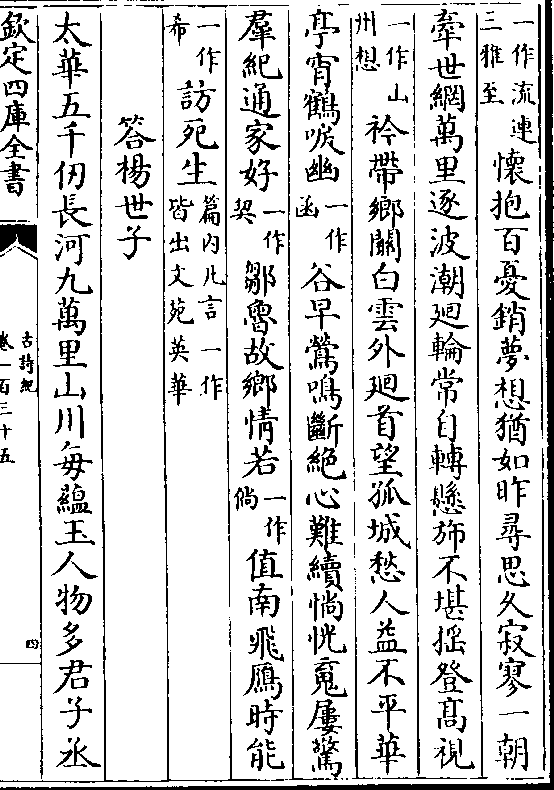 一作流連三雅至懷抱百憂銷夢想猶如昨尋思久寂寥一朝
牽世網萬里逐波潮廻輪常自轉懸斾不堪揺登髙視
一作山州想衿帶鄉關白雲外廻首望孤城愁人益不平華
亭宵鶴唳幽一作函谷早鶯鳴斷絶心難續惝怳䰟屢驚
羣紀通家好一作契鄒魯故鄉情若一作倘值南飛鴈時能
一作希訪死生篇内凡言一作皆出文苑英華
答楊世子
太華五千仞長河九萬里山川每藴玉人物多君子丞
欽定四庫全書
古詩紀
卷一百三十五
四